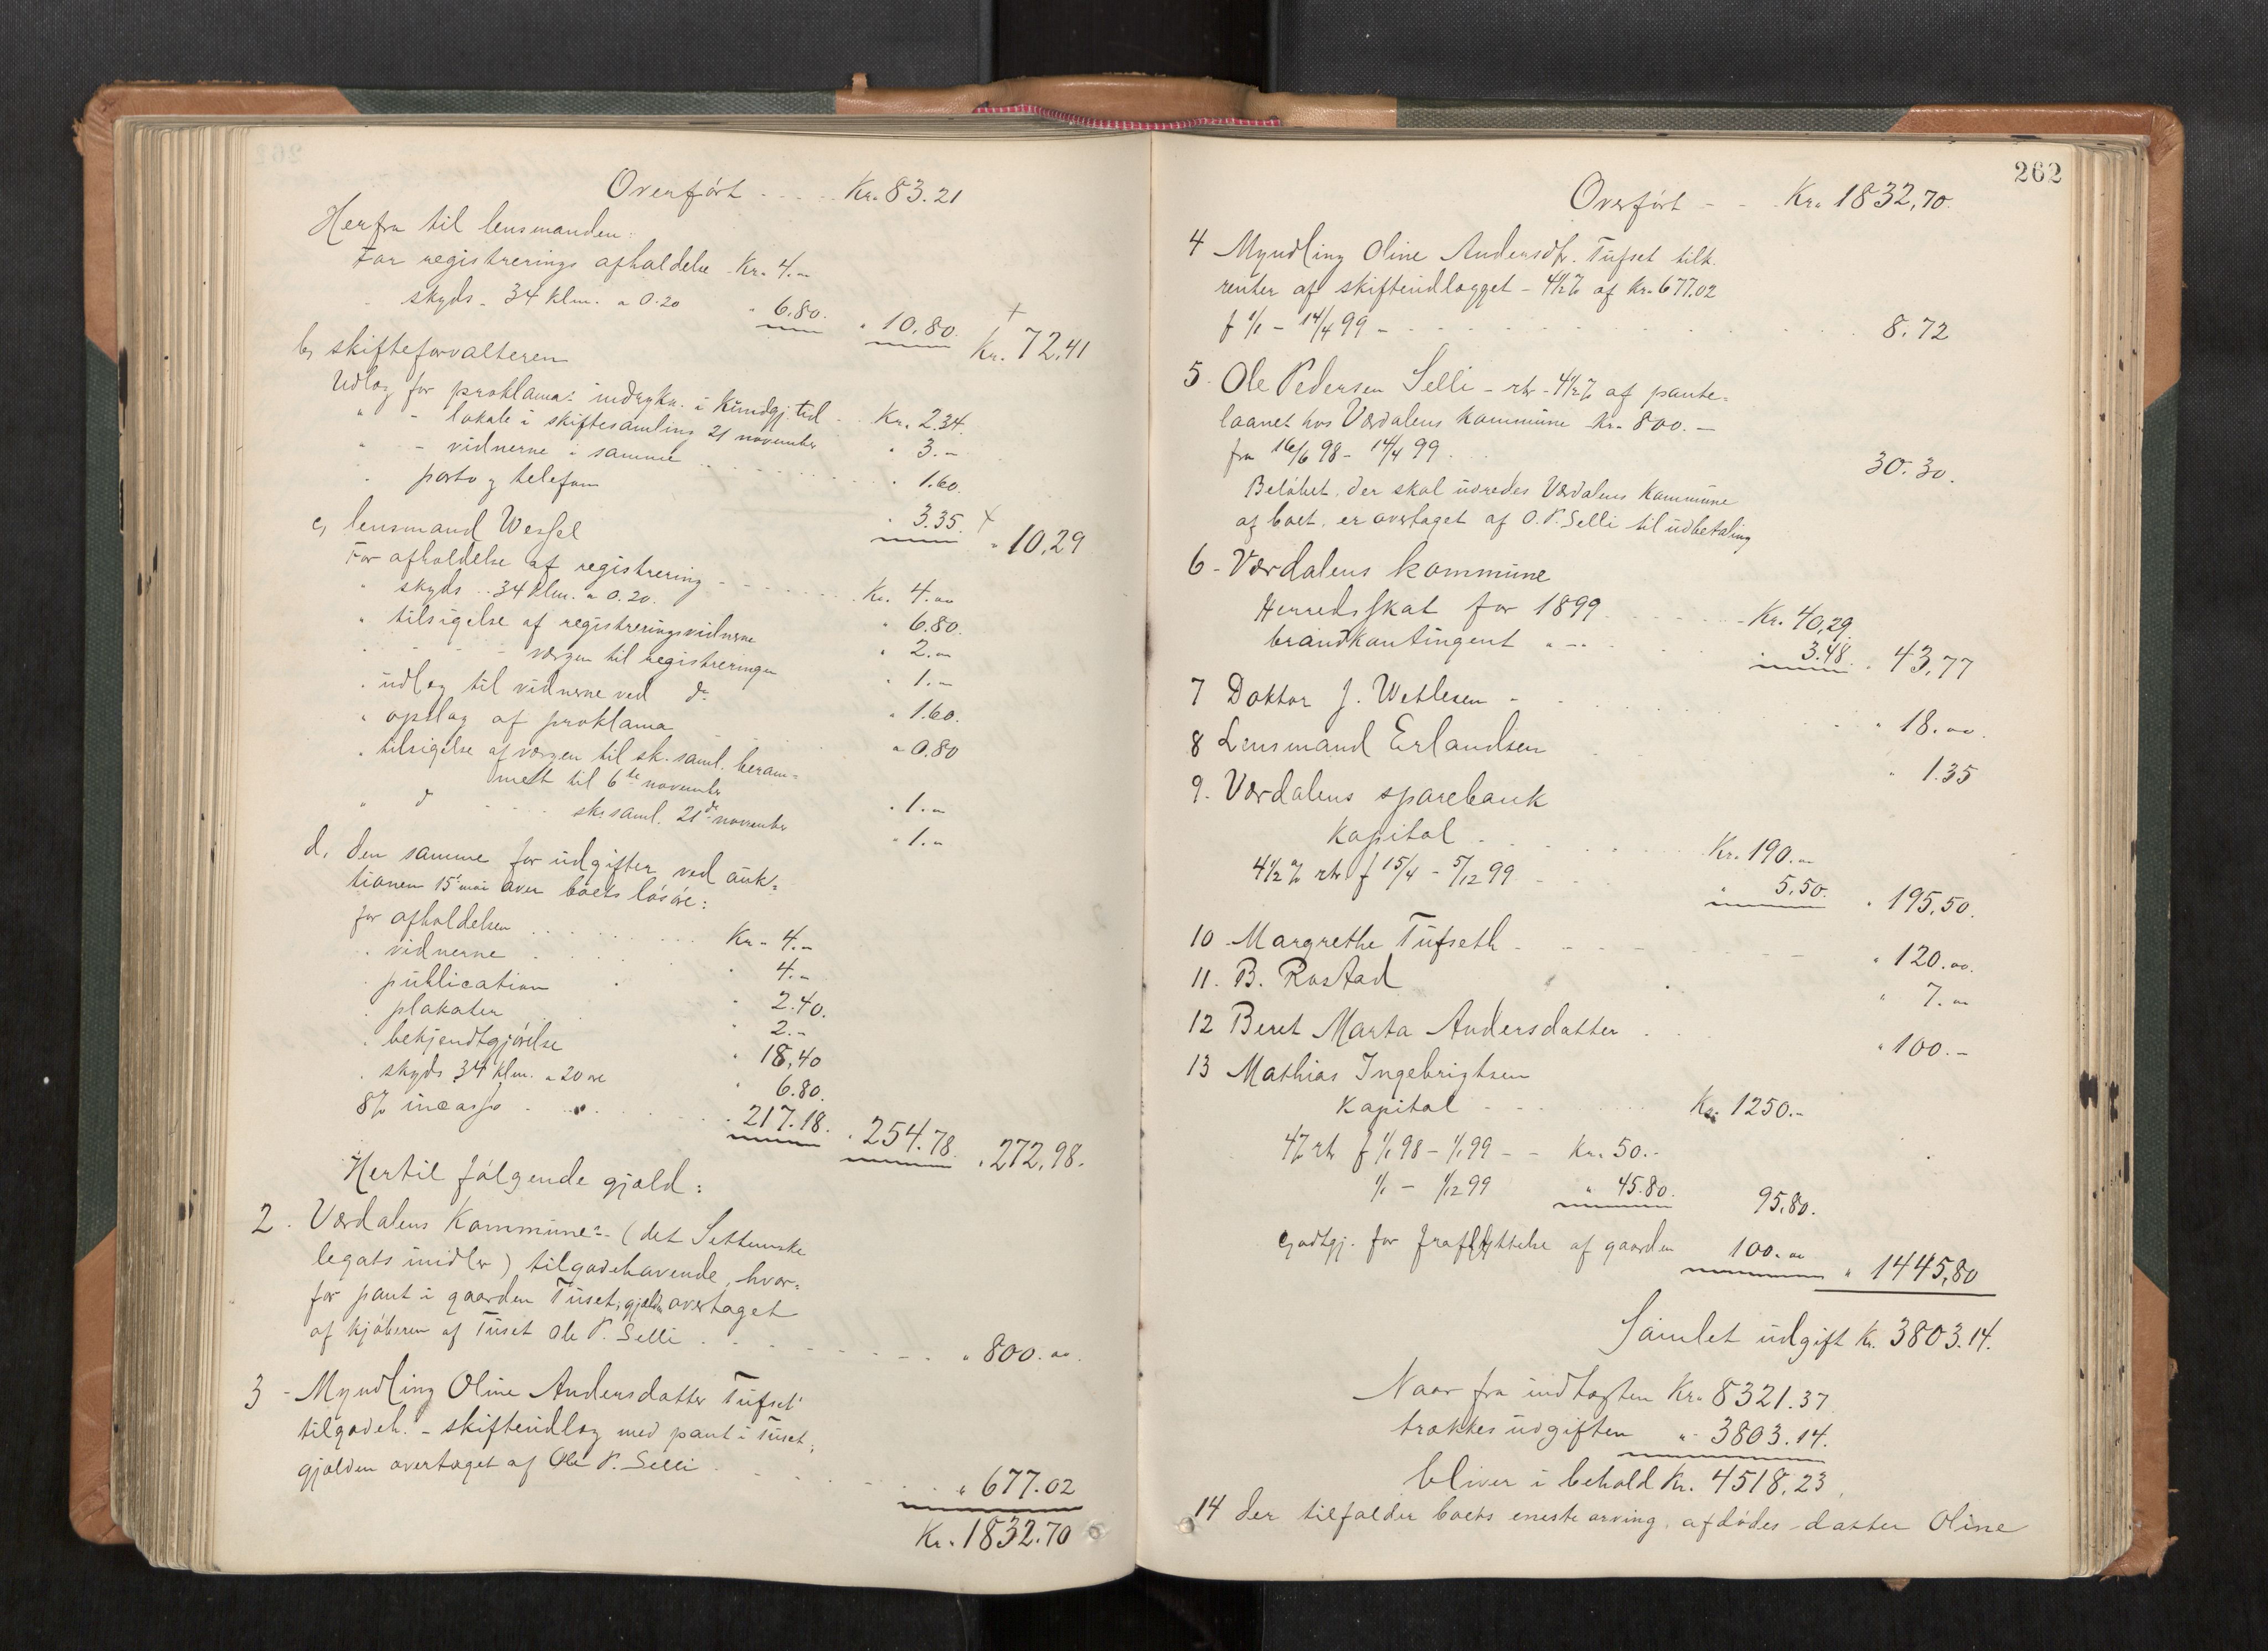 Overført - - - - Kr. 83.21
Herfra til lensmanden:
For registrerings afholdelse Kr. 4.-
" skyds - 34 klm. a 0.20 " 6.80. " 10.80. Kr. 72.41
b, skifteforvalteren
Udlæg for proklama: indrykn. i Kundgj. tid - Kr. 2.34.
" - lokale i skiftesamling 21 november " 3.-
" - vidnerne i samme " 1.60.
" porto og telefon " 3.35. " 10,29
c, lensmand Wessel
For afholdelse af registrering - - - - Kr. 4.00
" skyds .. 34 klm. a 0.20. " 6.80.
" tilsigelse af registreringsvidnerne " 2.00
" - - - værgen til registreringen " 1.-
" udlæg til vidnerne ved do " 1.60.
" opslag af proklama " 0.80
" tilsigelse af værgen til sk. saml. beram=
mett til 6te november " 1.-
" do - - - sk. saml. 21de november " 1.-
d, den samme for udgifter ved auk=
tionen 15' mai over boets løsøre:
for afholdelsen Kr. 4.-
" vidnerne " 4.-
" publication " 2.40.
" plakater " 2.-
" bekjendtgjørelse " 18,40
" skyds 34 klm. a 20 øre " 6.80.
8% incasso " 217.18. " 254.78. " 272,98.
Hertil følgende gjæld:
2. Værdalens Kommune:- (det
legats midler) tilgodehavende, hvor=
for pant i gaarden Tuset; gjælden overtaget
af kjøberen af Tuset Ole P. Selli - - - " 800.00.
3 - Myndling Oline Andersdatter Tufset
tilgodeh. - skifteudlæg med pant i Tuset,
gjælden overtaget af Ole P. Selli " 677.02
Kr. 1832.70
262
Overført - - Kr. 1832,70.
4 Myndling Oline Andersdtr. Tufset tilk.
renter af skifteudlægget - 4½% af Kr. 677.02
f 1/1 - 14/4 99 - 8.72
5. Ole Pedersen Selli - rtr - 4½% af pante=
laanet hos Værdalens kommune Kr. 800.-
fra 16/6 98 - 14/4 99. 30.30.
Beløbet, der skal udredes Værdalens Kommune
af boet, er overtaget af O. P. Selli til udbetaling
6 - Værdalens kommune
Herredsskat for 1899 - - - Kr. 40,29.
brandkontingent " - " 3.48. " 43,77
7 Doktor J. Wetlesen - " 18.00.
8 Lensmand Erlandsen " 1.35
9. Værdalens sparebank
Kapital Kr. 190.00
4½% rtr f 15/4 - 5/12 99 " 5.50. " 195,50.
10 Margrethe Tufseth - - - " 120.00.
11. B. Rostad " 7.00
12 Beret Marta Andersdatter " 100.-
13 Mathias Ingebrigtsen
Kapital - - - Kr. 1250.-
4% rtr f 1/1 98 - 1/1 99 - - Kr. 50.-
1/1 - 1/12 99 " 45.80. 95,80.
Godtgj. for fraflyttelse af gaarden 100.00 " 1445,80
Samlet udgift Kr. 3803.14.
Naar fra indtægten Kr. 8321.37
trækkes udgiften " 3803.14.
bliver i behold Kr. 4518,23,
14 der tilfalder boets eneste arving, afdødes datter Oline